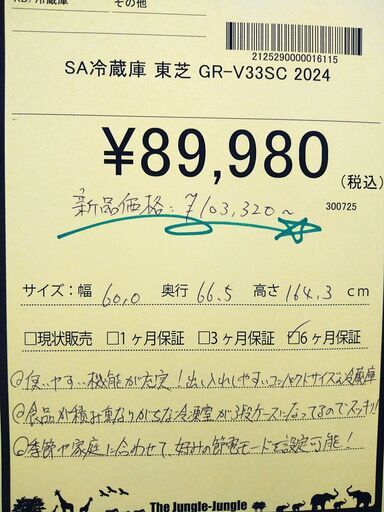 RD/冷蔵庫 その他
2125290000016115
SA冷蔵庫 東芝 GR-V33SC 2024
¥89,980
(税込)
新品価格：¥103,320～
300725
サイズ：幅 60.0 奥行 66.5 高さ 164.3 cm
□現状販売 □1ヶ月保証 □3ヶ月保証 ☑6ヶ月保証
◎使いやすい機能が充実！出し入れしやすいコンパクトサイズな冷蔵庫
◎食品が積み重なりがちな冷凍室が3段ケースになってるのでスッキリ！
◎季節や家庭に合わせて、好みの節電モードを設定可能！
The Jungle-Jungle